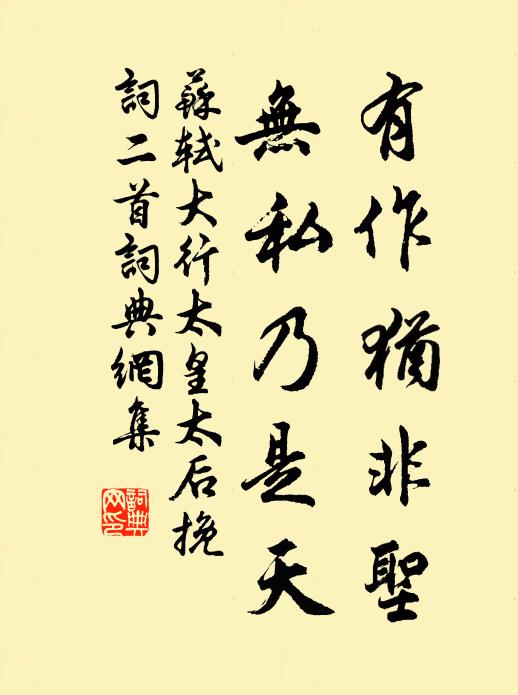 有作猶非聖
無私乃是天
蘇軾大行太皇太后挽
詞二首詞典網集
詞典网印